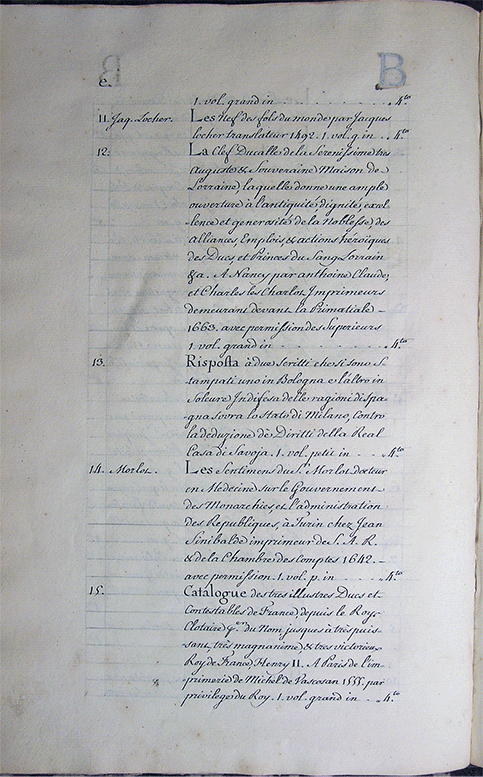 B
e.
1. vol. grand in - - - - - 4.to
11. Jaq. Locher. Les Nef des fols du monde par Jaques
locher translateur 1492. 1. vol. g. in - 4.to
12. La Clef Ducalle de la Serenissime tres
Auguste & Souveraine Maison de
Lorraine, laquelles donne une ample
ouverture à l'antiquité, dignité, excel
lence et generosité de la Noblesse, des
alliances, Emplois, & actions héroiques
des Ducs, et Princes du Sang Lorrain
&a. A Nancy par anthoine Claude,
et Charles les Charlot Imprimeurs
demeurant devant la Primatiale -
1663. avec permission des Superieurs
1. vol. grand in - - - - - 4.to
13. Risposta à due scritti che si sono S-
tampati uno in Bologna e l'altro in
Soleure, In difesa delle ragioni di spa-
gna sovra lo stato di Milano, Contro
la deduzione de Diritti della Real
Casa di Savoja. 1. vol. petit in - - 4.to
14. Morlot. Les Sentimens du S.r Morlot docteur
en Médecine sur le Gouvernement
des Monarchies, et l'administration
des Republiques, à Turin chez Jean
Sinibalde imprimeur de S. A. R.
& de la Chambre des Comptes 1642. -
avec permission. 1. vol. p. in - - - 4.to
15. Catalogue des tres illustres Ducs et
Contestables de France, depuis le Roy
Clotaire du Nom jusques à très puis-
sant, très magnanime & tres victorieux
Roy de France, Henry II. A Paris de l'im-
primerie de Michel de Vascosan 1555. par
privilege du Roy. 1. vol. grand in - - 4.to